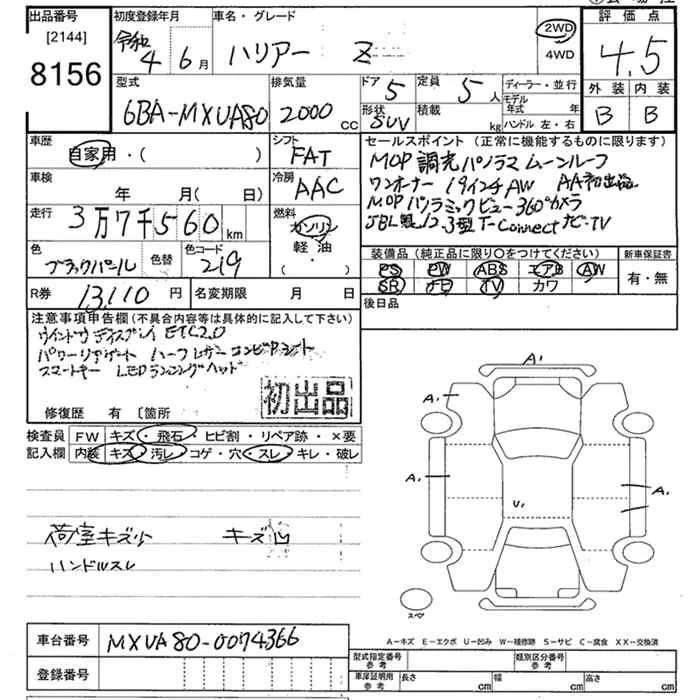 出品番号
[2144]
8156
初度登録年月
令和 4年 6月
車名・グレード
ハリアー Z
2WD
4WD
評価点
4.5
外装 内装
B B
型式
6BA-MXUA80
排気量
2000 cc
ドア 5
定員 5人
形状 SUV
積載 kg
ディーラー・並行
モデル年式 年
ハンドル 左・右
車歴
自家用・( )
シフト
FAT
車検
年 月( 日)
冷房
AAC
走行
3万7千560 km
燃料
ガソリン
軽油
( )
色
ブラックパール
色替
色コード
219
R券
13,110 円
名変期限 月 日
セールスポイント (正常に機能するものに限ります)
MOP 調光パノラマ ムーンルーフ
ワンオーナー 19インチAW AA初出品
MOP パノラミックビュー 360°カメラ
JBL製 12.3型 T-Connect ナビ・TV
装備品 (純正品に限り○をつけてください)
新車保証書
PS PW ABS エアB AW
SR ナビ TV カワ
有・無
後日品
注意事項申告欄 (不具合内容等は具体的に記入して下さい)
ETC2.0
スマートキー LEDランニングヘッド
初出品
修復歴 有 〔箇所
検査員
記入欄
FW キズ・飛石・ヒビ割・リペア跡・×要
内装 キズ・汚レ・コゲ・穴・スレ・キレ・破レ
荷室キズ小 キズ凹
ハンドルスレ
A'
A,
A,
U,
A,
スペア
A-キズ E-エクボ U-凹み W-補修跡 S-サビ C-腐食 XX-交換済
車台番号
MXUA80-0074366
登録番号
型式指定番号 参考
類別区分番号 参考
車庫証明用 参考
長さ cm
幅 cm
高さ cm